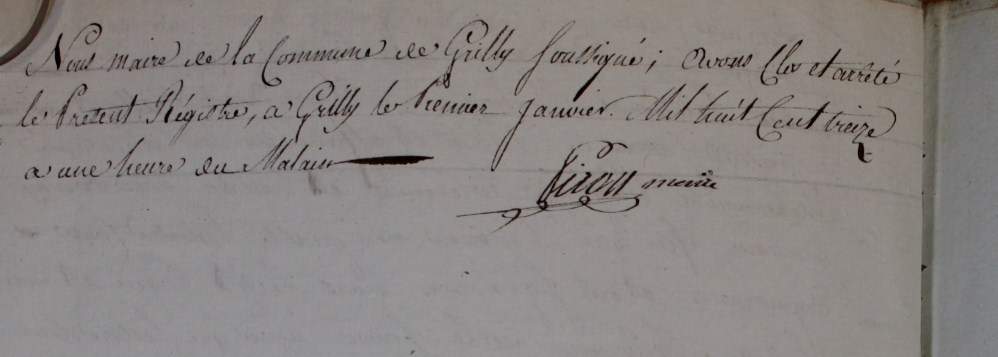 Nous maire de la Commune de Grilly soussigné; avons Clos et arrêté
le Present Régistre, a Grilly le Premier Janvier. Mil huit Cent treize
a une heure du Matain
maire